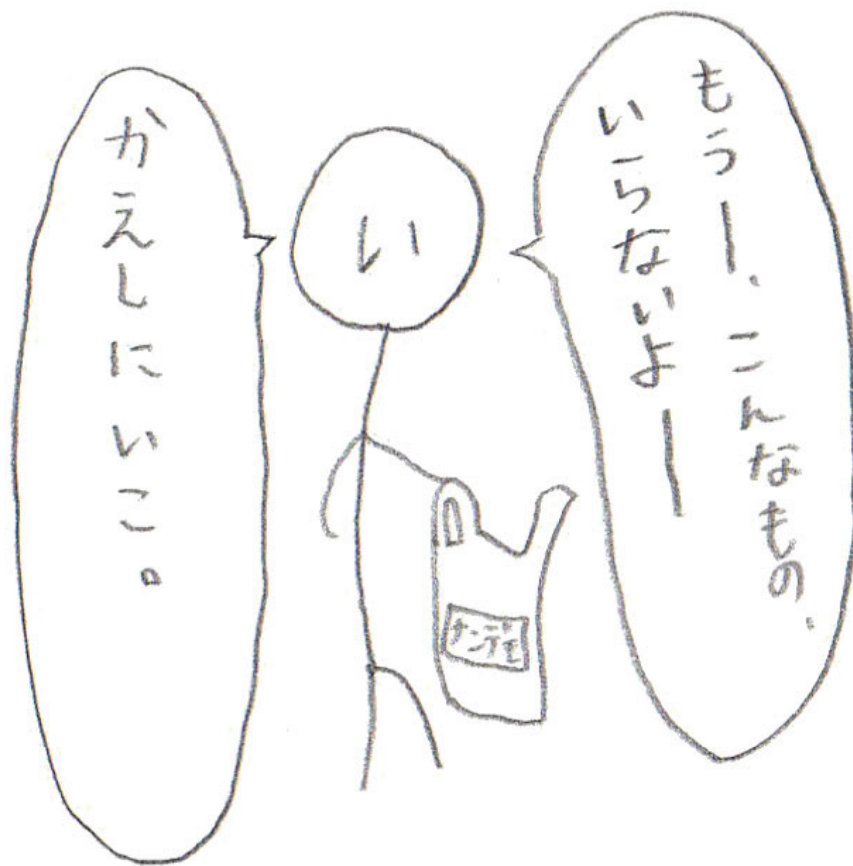 もうー、こんなもの、
いらないよー
い
かえしにいこ。